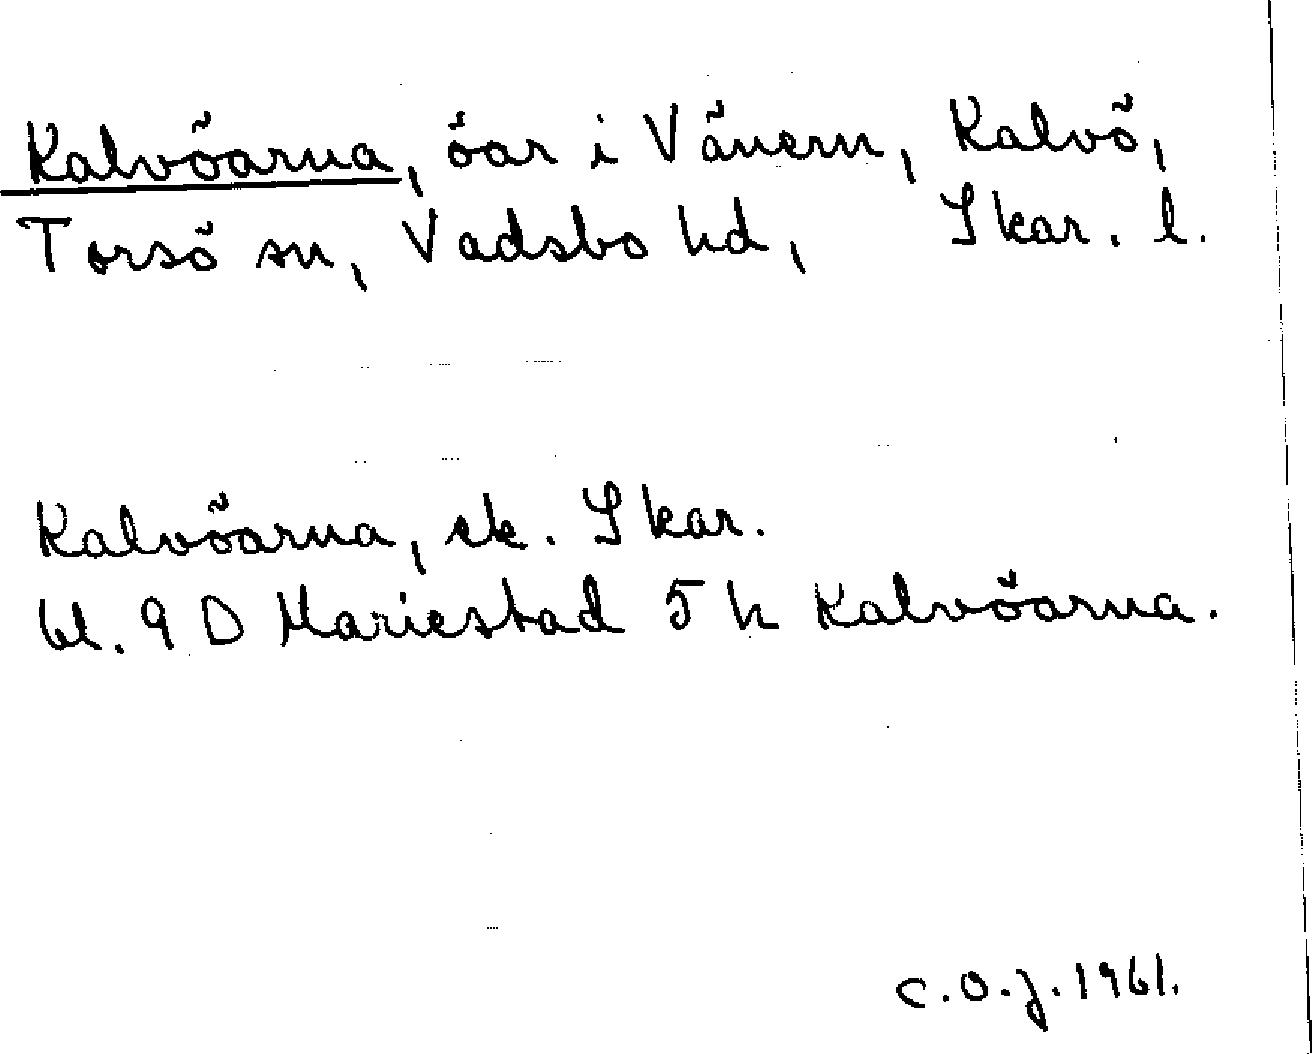 Kalvöarna, öar i Vänern, Kalvö,
Torsö sn, Vadsbo hd, Skar. l.
Kalvöarna, ek. Skar.
bl. 9 D Mariestad 5 h Kalvöarna.
C.O.J. 1961.